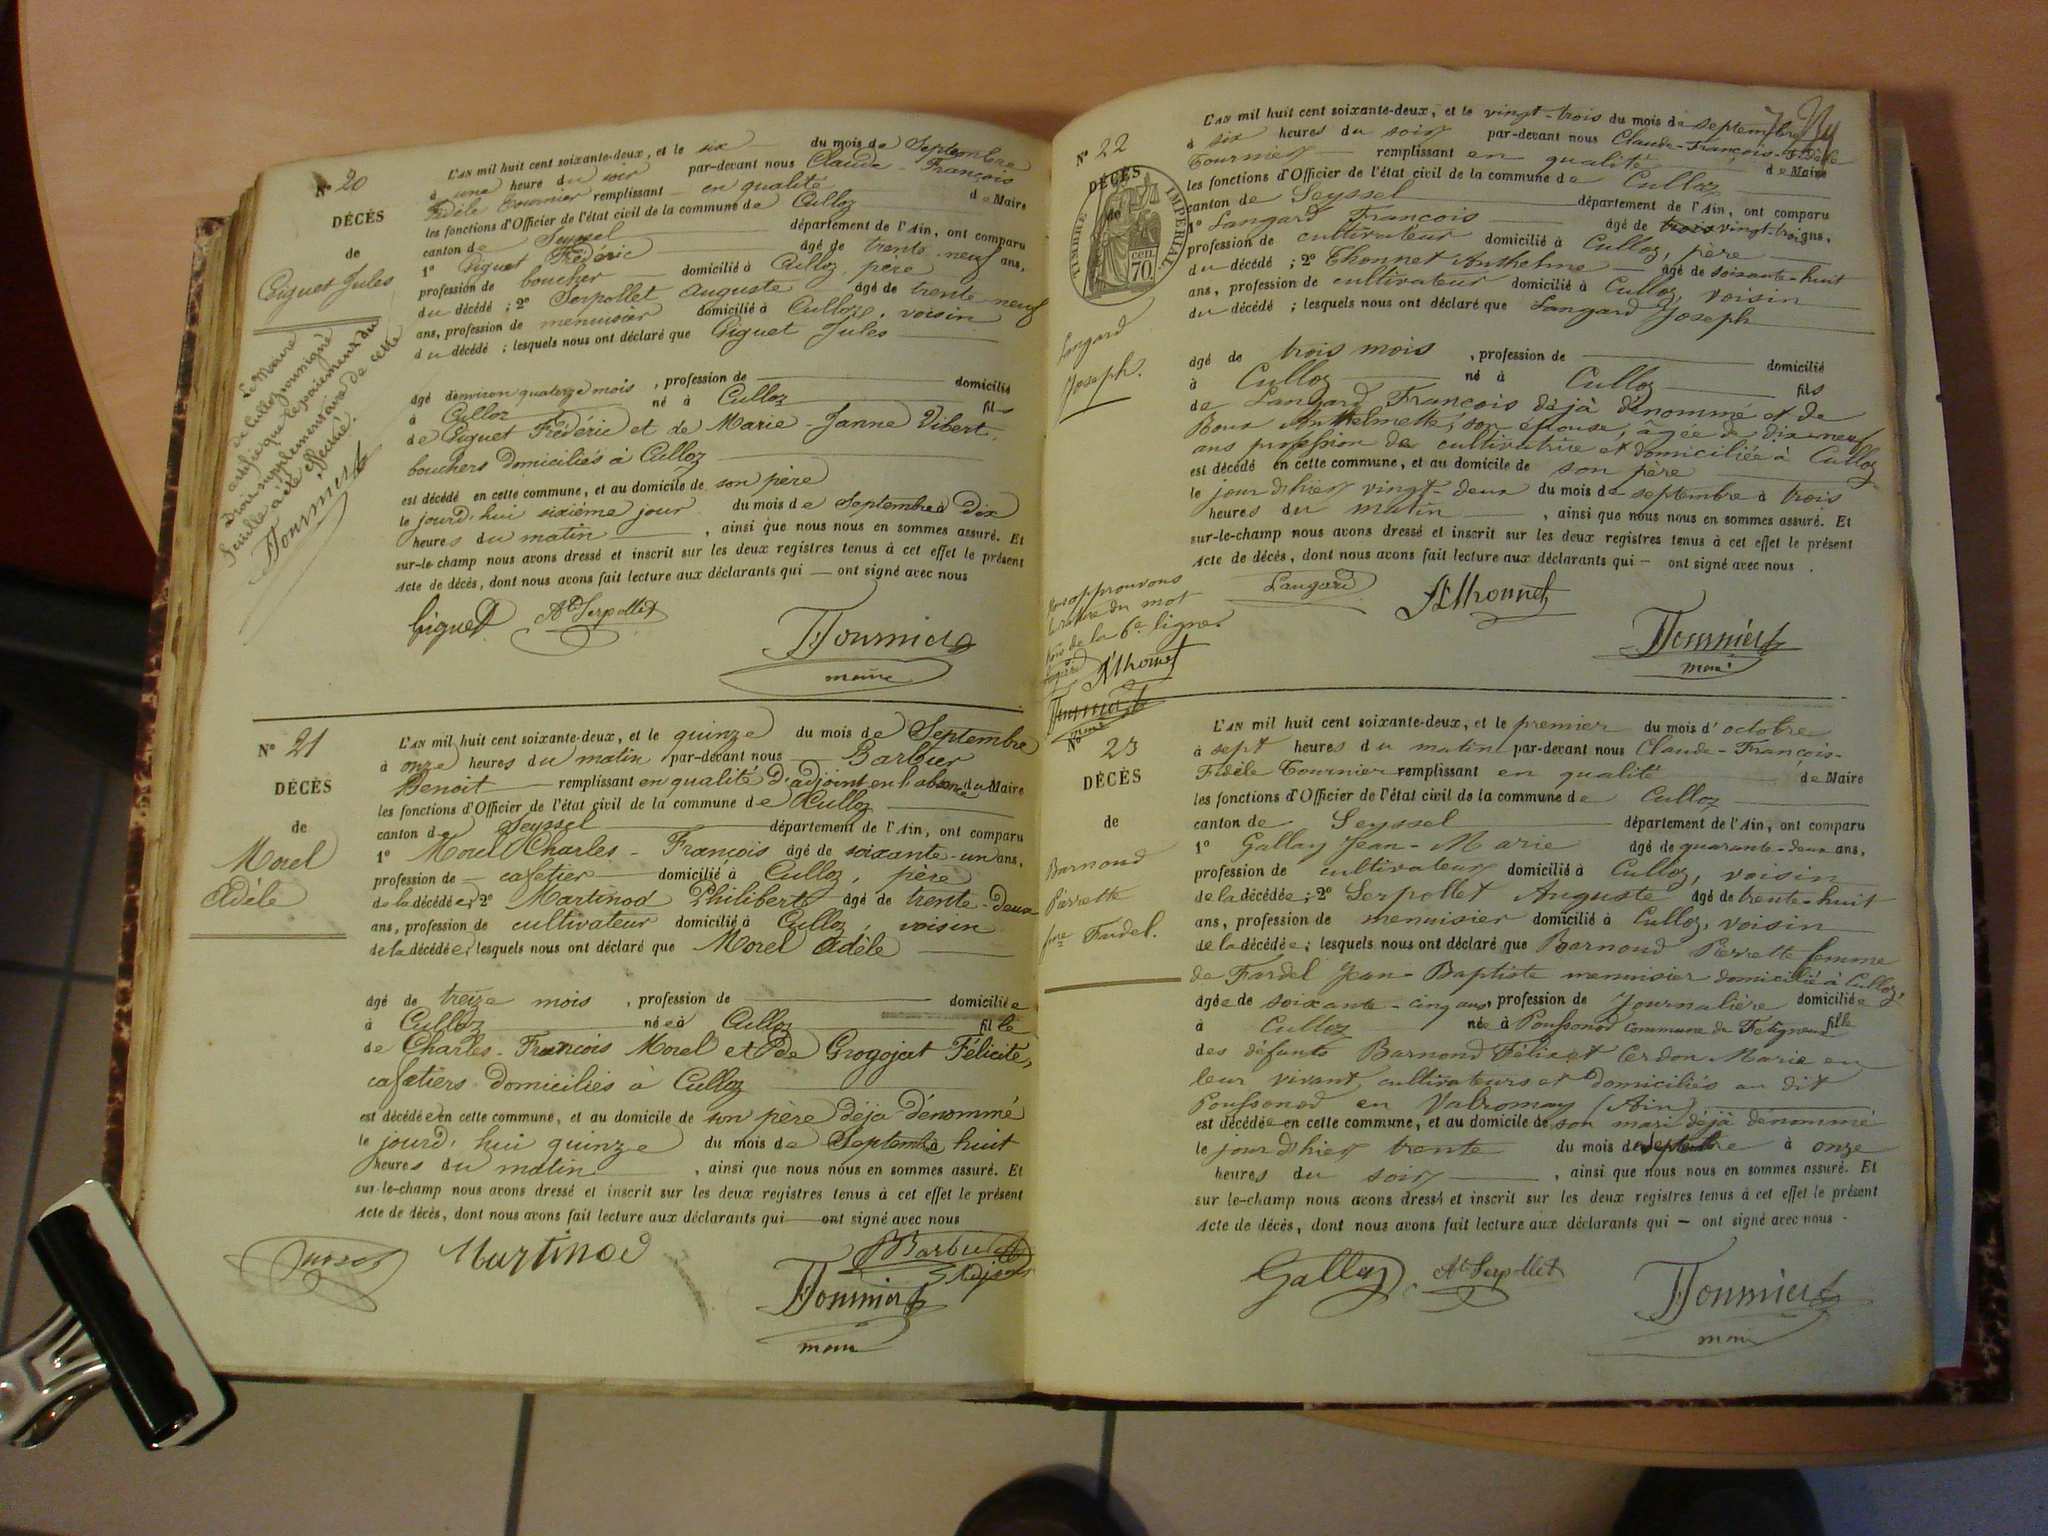 N° 20
DÉCÈS
de
Giguet Jules
Le Maire
de Culloz soussigné
certifie que le paiement du
droit supplémentaire de cette
feuille a été effectué.
Tournier
L'AN mil huit cent soixante-deux, et le six du mois de Septembre
à une heure du soir par-devant nous Claude-François
Fidèle Tournier remplissant en qualité de Maire
les fonctions d'Officier de l'état civil de la commune de Culloz
canton de Seyssel département de l'Ain, ont comparu
1° Giguet Fréderic âgé de trente-neuf ans,
profession de boucher domicilié à Culloz, père
du décédé ; 2° Serpollet Auguste âgé de trente neuf
ans, profession de menuisier domicilié à Culloz, voisin
du décédé ; lesquels nous ont déclaré que Giguet Jules
âgé d'environ quatorze mois , profession de domicilié
à Culloz né à Culloz fils
de Giguet Fréderic et de Marie-Janne Vibert,
bouchers domiciliés à Culloz
est décédé en cette commune, et au domicile de son père
le jourd'hui sixième jour du mois de Septembre à Dix
heures du matin , ainsi que nous nous en sommes assuré. Et
sur-le-champ nous avons dressé et inscrit sur les deux registres tenus à cet effet le présent
Acte de décès, dont nous avons fait lecture aux déclarants qui — ont signé avec nous
Giguet At Serpollet
Tournier
maire
N° 21
DÉCÈS
de
Morel
Adèle
L'AN mil huit cent soixante-deux, et le quinze du mois de Septembre
à onze heures du matin par-devant nous Barbier
Benoit remplissant en qualité d'adjoint en l'absence du Maire
les fonctions d'Officier de l'état civil de la commune de Culloz
canton de Seyssel département de l'Ain, ont comparu
1° Morel Charles-François âgé de soixante-un ans,
profession de cafetier domicilié à Culloz, père
de la décédée, 2° Martinod Philibert âgé de trente-deux
ans, profession de cultivateur domicilié à Culloz, voisin
de la décédée, lesquels nous ont déclaré que Morel Adèle
âgé de treize mois , profession de domiciliée
à Culloz née à Culloz fille
de Charles-François Morel et de Grogojat Félicité,
cafetiers domiciliés à Culloz
est décédée en cette commune, et au domicile de son père déjà dénommé
le jourd'hui quinze du mois de Septembre à huit
heures du matin , ainsi que nous nous en sommes assuré. Et
sur-le-champ nous avons dressé et inscrit sur les deux registres tenus à cet effet le présent
Acte de décès, dont nous avons fait lecture aux déclarants qui — ont signé avec nous
Martinod BBarbier
Adjoint
Tournier
maire
N° 22
DÉCÈS
de
TIMBRE IMPÉRIAL
70 cen.
Langard
Joseph.
Nous approuvons
la rature du mot
trois de la 6e ligne.
Langard AThonnet
Tournier
maire
L'AN mil huit cent soixante-deux, et le vingt-trois du mois de septembre
à six heures du soir par-devant nous Claude-François-Fidèle
Tournier remplissant en qualité de Maire
les fonctions d'Officier de l'état civil de la commune de Culloz
canton de Seyssel département de l'Ain, ont comparu
1° Langard François âgé de trois vingt-trois ans,
profession de cultivateur domicilié à Culloz, père
du décédé ; 2° Thonnet Anthelme âgé de soixante-huit
ans, profession de cultivateur domicilié à Culloz, voisin
du décédé ; lesquels nous ont déclaré que Langard Joseph
âgé de trois mois , profession de domicilié
à Culloz né à Culloz fils
de Langard François déjà dénommé et de
Anthelmette, son épouse, âgée de dix-neuf
ans profession de cultivatrice et domiciliée à Culloz
est décédé en cette commune, et au domicile de son père
le jour d'hier vingt-deux du mois de septembre à trois
heures du matin , ainsi que nous nous en sommes assuré. Et
sur-le-champ nous avons dressé et inscrit sur les deux registres tenus à cet effet le présent
Acte de décès, dont nous avons fait lecture aux déclarants qui — ont signé avec nous .
Langard AThonnet
Tournier
maire
N° 23
DÉCÈS
de
Barnoud
Pierrette
fme Fardel.
L'AN mil huit cent soixante-deux, et le premier du mois d'octobre
à sept heures du matin par-devant nous Claude-François-
Fidèle Tournier remplissant en qualité de Maire
les fonctions d'Officier de l'état civil de la commune de Culloz
canton de Seyssel département de l'Ain, ont comparu
1° Gallay Jean-Marie âgé de quarante-deux ans,
profession de cultivateur domicilié à Culloz, voisin
de la décédée ; 2° Serpollet Auguste âgé de trente-huit
ans, profession de menuisier domicilié à Culloz, voisin
de la décédée ; lesquels nous ont déclaré que Barnoud Pierrette femme
de Fardel Jean-Baptiste menuisier domicilié à Culloz,
âgée de soixante-cinq ans, profession de Journalière domiciliée
à Culloz née à Poussonod commune de fille
des défunts Barnoud Félix et Cerdon Marie en
leur vivant, cultivateurs et domiciliés au dit
Poussonod en Valromay (Ain)
est décédée en cette commune, et au domicile de son mari déjà dénommé
le jour d'hier trente du mois de septembre à onze
heures du soir , ainsi que nous nous en sommes assuré. Et
sur le-champ nous avons dressé et inscrit sur les deux registres tenus à cet effet le présent
Acte de décès, dont nous avons fait lecture aux déclarants qui — ont signé avec nous .
Gallay At Serpollet
Tournier
maire